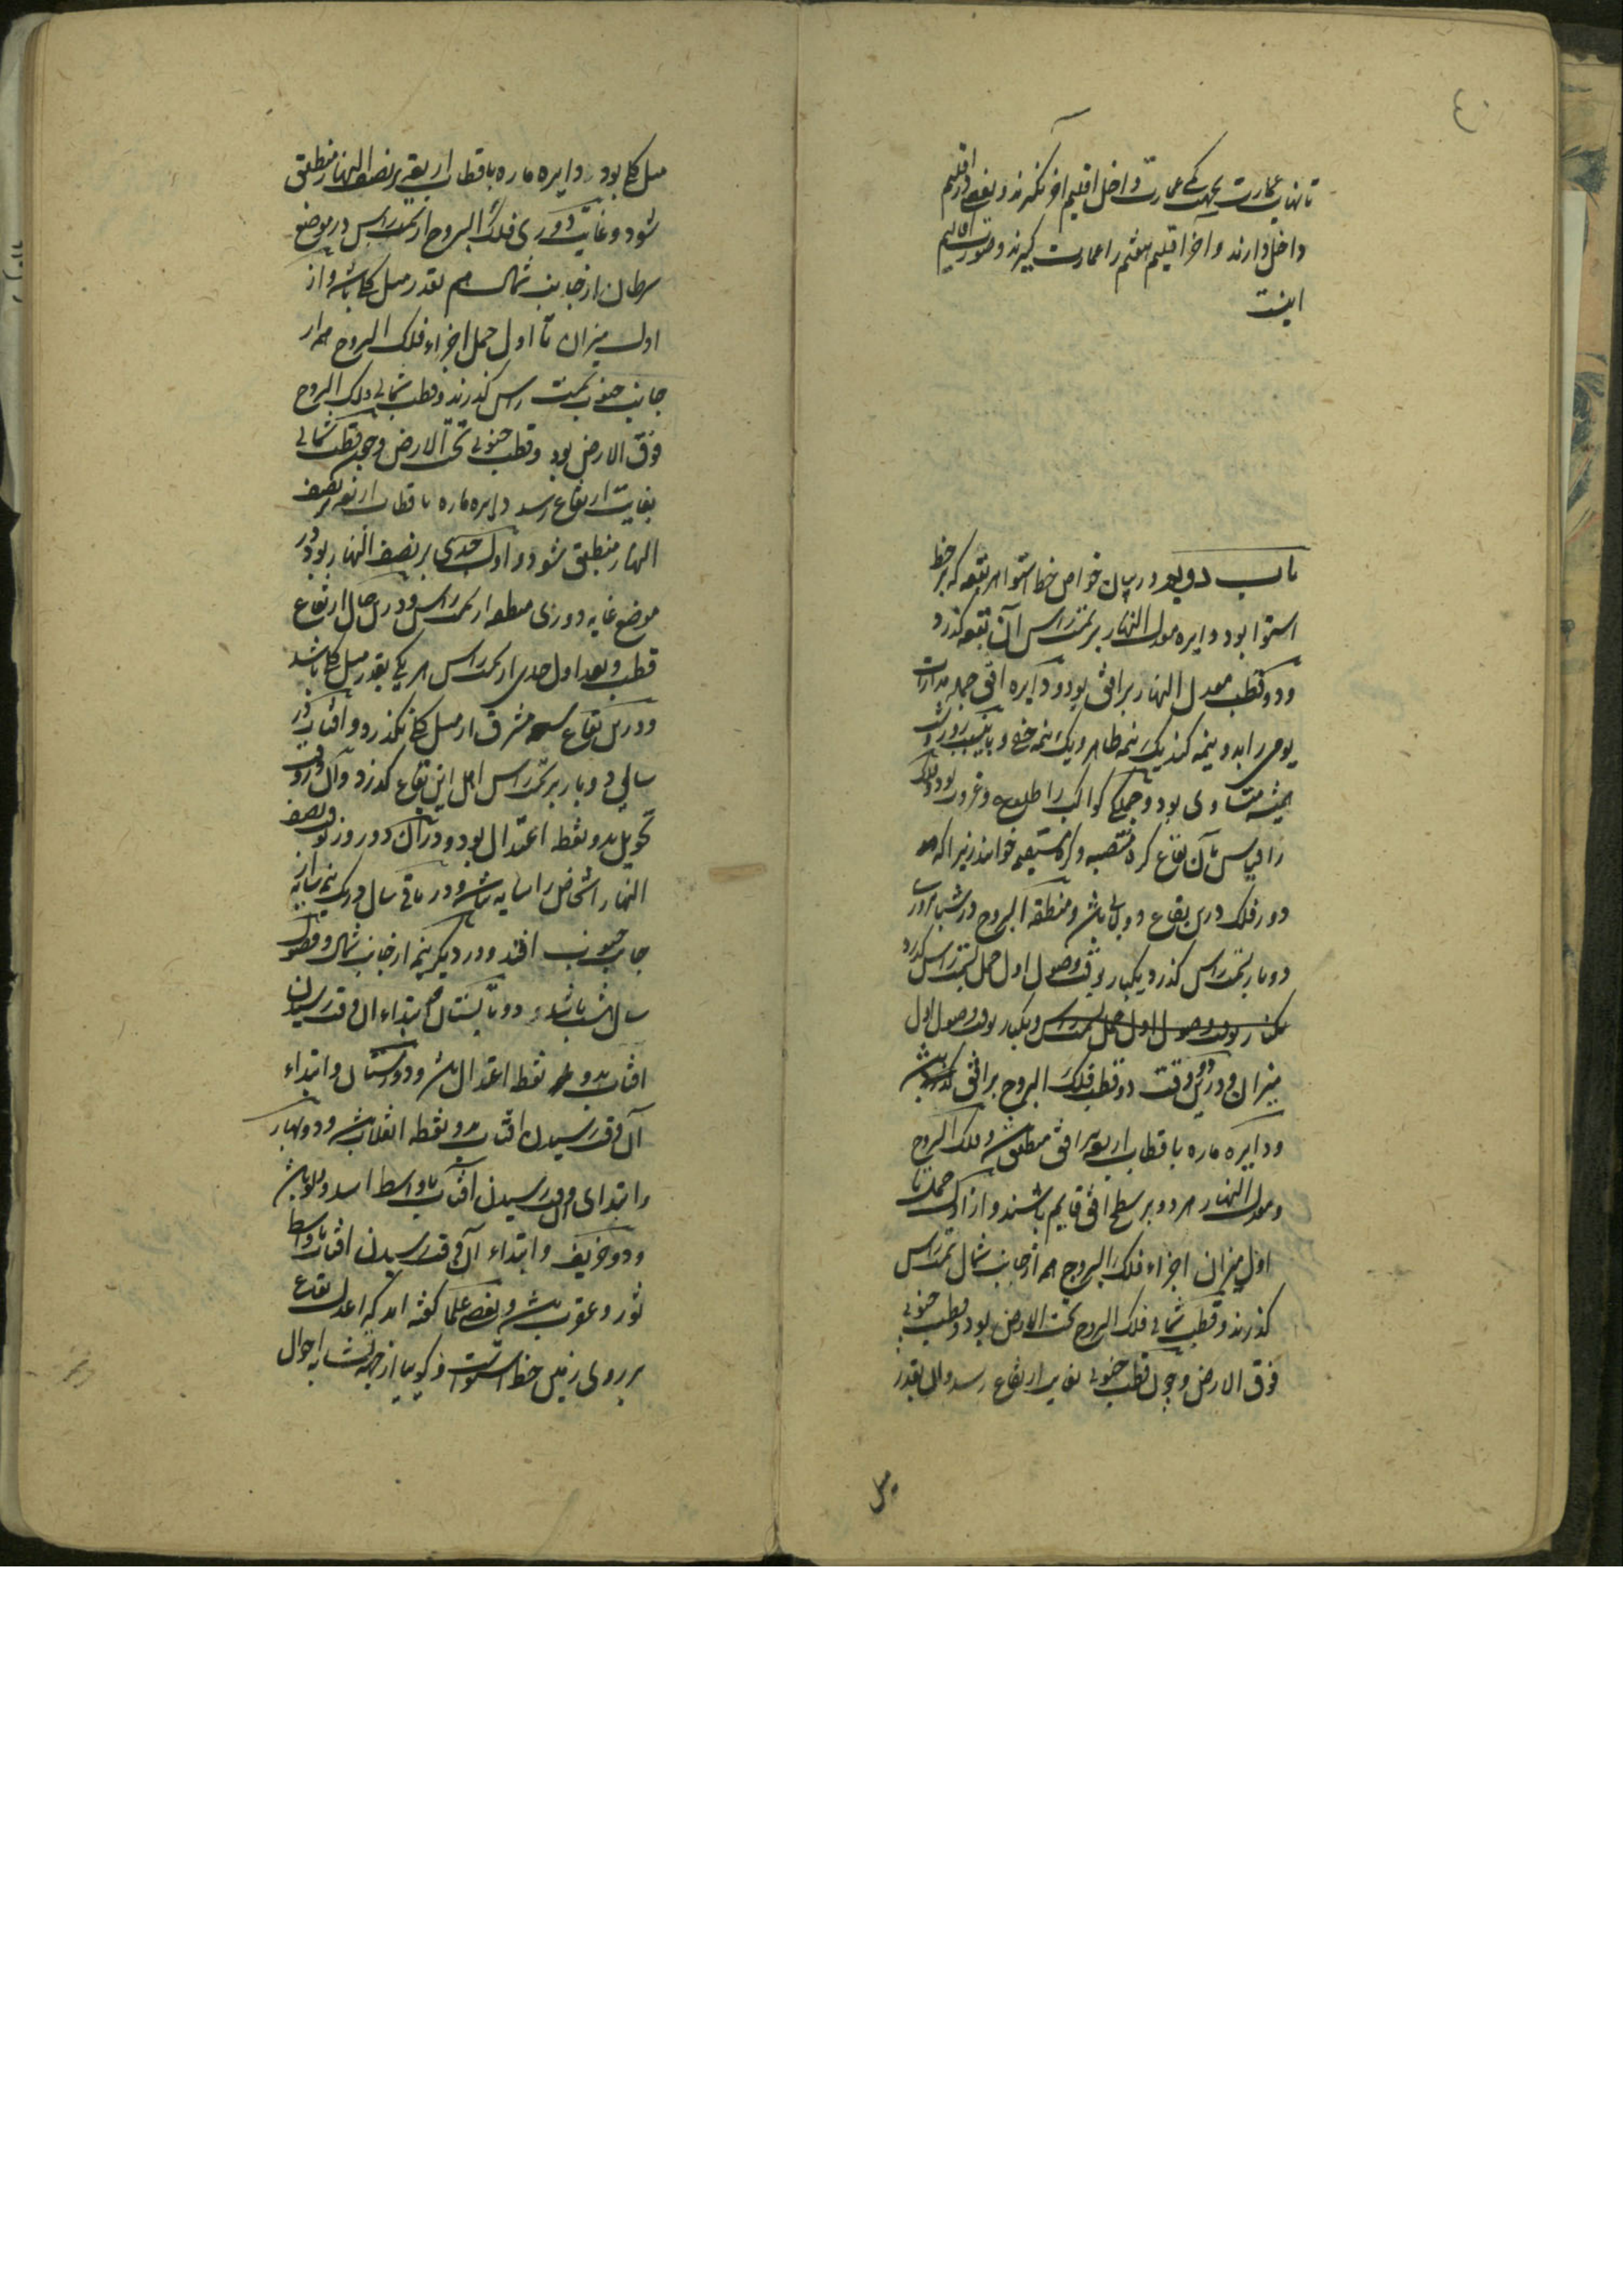 تا نهایت عمارت بجهت کمی عمارت داخل اقلیم آخر نگیرند و بعضی در اقلیم
داخل دارند و آخر اقلیم هفتم را عمارت گیرند و صورت اقالیم
اینست
باب دویم در بیان خواص خط استوا هر بقعه که بر خط
استوا بود دایره معدل النهار بر سمت راس آن بقعه گذرد
و دو قطب معدل النهار بر افق بود و دایره افق جمله مدارات
یومی را بدو نیمه کند یک نیمه ظاهر و یک نیمه خفی و باین سبب روز و شب
همیشه متساوی بود و جملگی کواکب را طلوع و غروب بود و فلک
را بقیاس بآن بقاع کره منتصبه و کره مستقیمه خوانند زیرا که
دور فلک درین بقاع دولابی باشد و منطقه البروج در شبانروزی
دو بار بسمت راس گذرد یکبار بوقت وصول اول حمل بسمت راس گذرد
یکبار بوقت وصول اول حمل بسمت راس و یکبار بوقت وصول اول
میزان و درین دو وقت دو قطب فلک البروج بر افق باشد
و دایره ماره باقطاب اربعه بر افق منطبق شود و فلک البروج
و معدل النهار هر دو بر سطح افق قایم باشند و از اول حمل تا
اول میزان اجزاء فلک البروج هم از جانب شمال سمت راس
گذرند و قطب شمالی فلک البروج تحت الارض بود و قطب جنوبی
فوق الارض و چون قطب جنوبی بغایت ارتفاع رسد و آن بقدر
میل
میل کلی بود دایره ماره باقطاب اربعه بر نصف النهار منطبق
شود و غایت دوری فلک البروج از سمت راس در موضع
سرطان از جانب شمال هم بقدر میل کلی باشد و از
اول میزان تا اول حمل اجزاء فلک البروج هم از
جانب جنوب سمت راس گذرند و قطب شمالی فلک البروج
فوق الارض بود و قطب جنوبی تحت الارض و چون قطب شمالی
بغایت ارتفاع رسد دایره ماره باقطاب اربعه بر نصف
النهار منطبق شود و اول جدی بر نصف النهار بود در
موضع غایه دوری منطقه از سمت راس و درین حال ارتفاع
قطب و بعد اول جدی از سمت راس هر یکی بقدر میل کلی باشد
و درین بقاع سعه مشرق از میل کلی نگذرد و افتاب در
سالی دو بار بر سمت راس اهل این بقاع گذرد و آن در وقت
تحویل بدو نقطه اعتدال بود و در آن دو روز بوقت نصف
النهار اشخاص را سایه نباشد و در باقی سال در یک نیمه سایه از
جانب جنوب افتد و در دیگر نیمه از جانب شمال و فصول
سال هشت باشد دو تابستان و ابتداء آن وقت رسیدن
افتاب بدو نقطه اعتدال باشد و دو زمستان و ابتداء
آن وقت رسیدن افتاب بدو نقطه انقلاب باشد و دو بهار
و ابتدای آن وقت رسیدن آفتاب باواسط اسد و دلو باشد
و دو خریف و ابتداء آن وقت رسیدن افتاب باواسط
ثور و عقرب باشد و بعضی علما گفته اند که اعدل بقاع
بر روی زمین خط استواست و گویند از جهة تشابه احوال